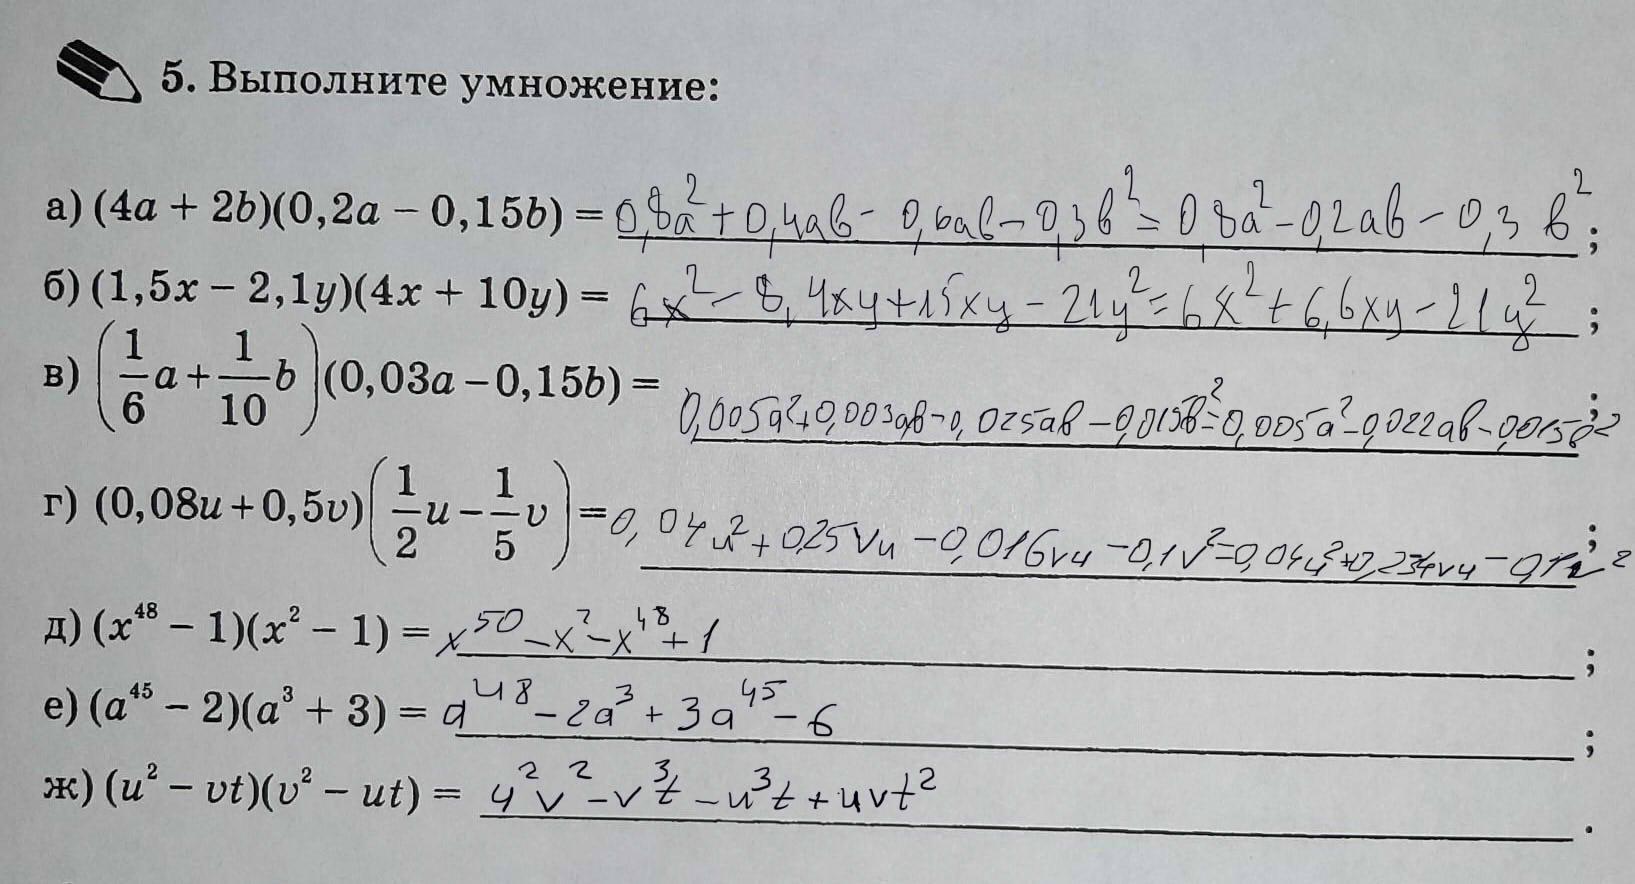 5. Выполните умножение:
а) (4a + 2b)(0,2a − 0,15b) = 0,8a² + 0,4ab − 0,6ab − 0,3b² = 0,8a² − 0,2ab − 0,3b²;
б) (1,5x − 2,1y)(4x + 10y) = 6x² − 8,4xy + 15xy − 21y² = 6x² + 6,6xy − 21y²;
в) (1/6 a + 1/10 b)(0,03a − 0,15b) = 0,005a² + 0,003ab − 0,025ab − 0,015b² = 0,005a² − 0,022ab − 0,015b²;
г) (0,08u + 0,5v)(1/2 u − 1/5 v) = 0,04u² + 0,25vu − 0,016vu − 0,1v² = 0,04u² + 0,234vu − 0,1v²;
д) (x⁴⁸ − 1)(x² − 1) = x⁵⁰ − x² − x⁴⁸ + 1;
е) (a⁴⁵ − 2)(a³ + 3) = a⁴⁸ − 2a³ + 3a⁴⁵ − 6;
ж) (u² − vt)(v² − ut) = u²v² − v³t − u³t + uvt².